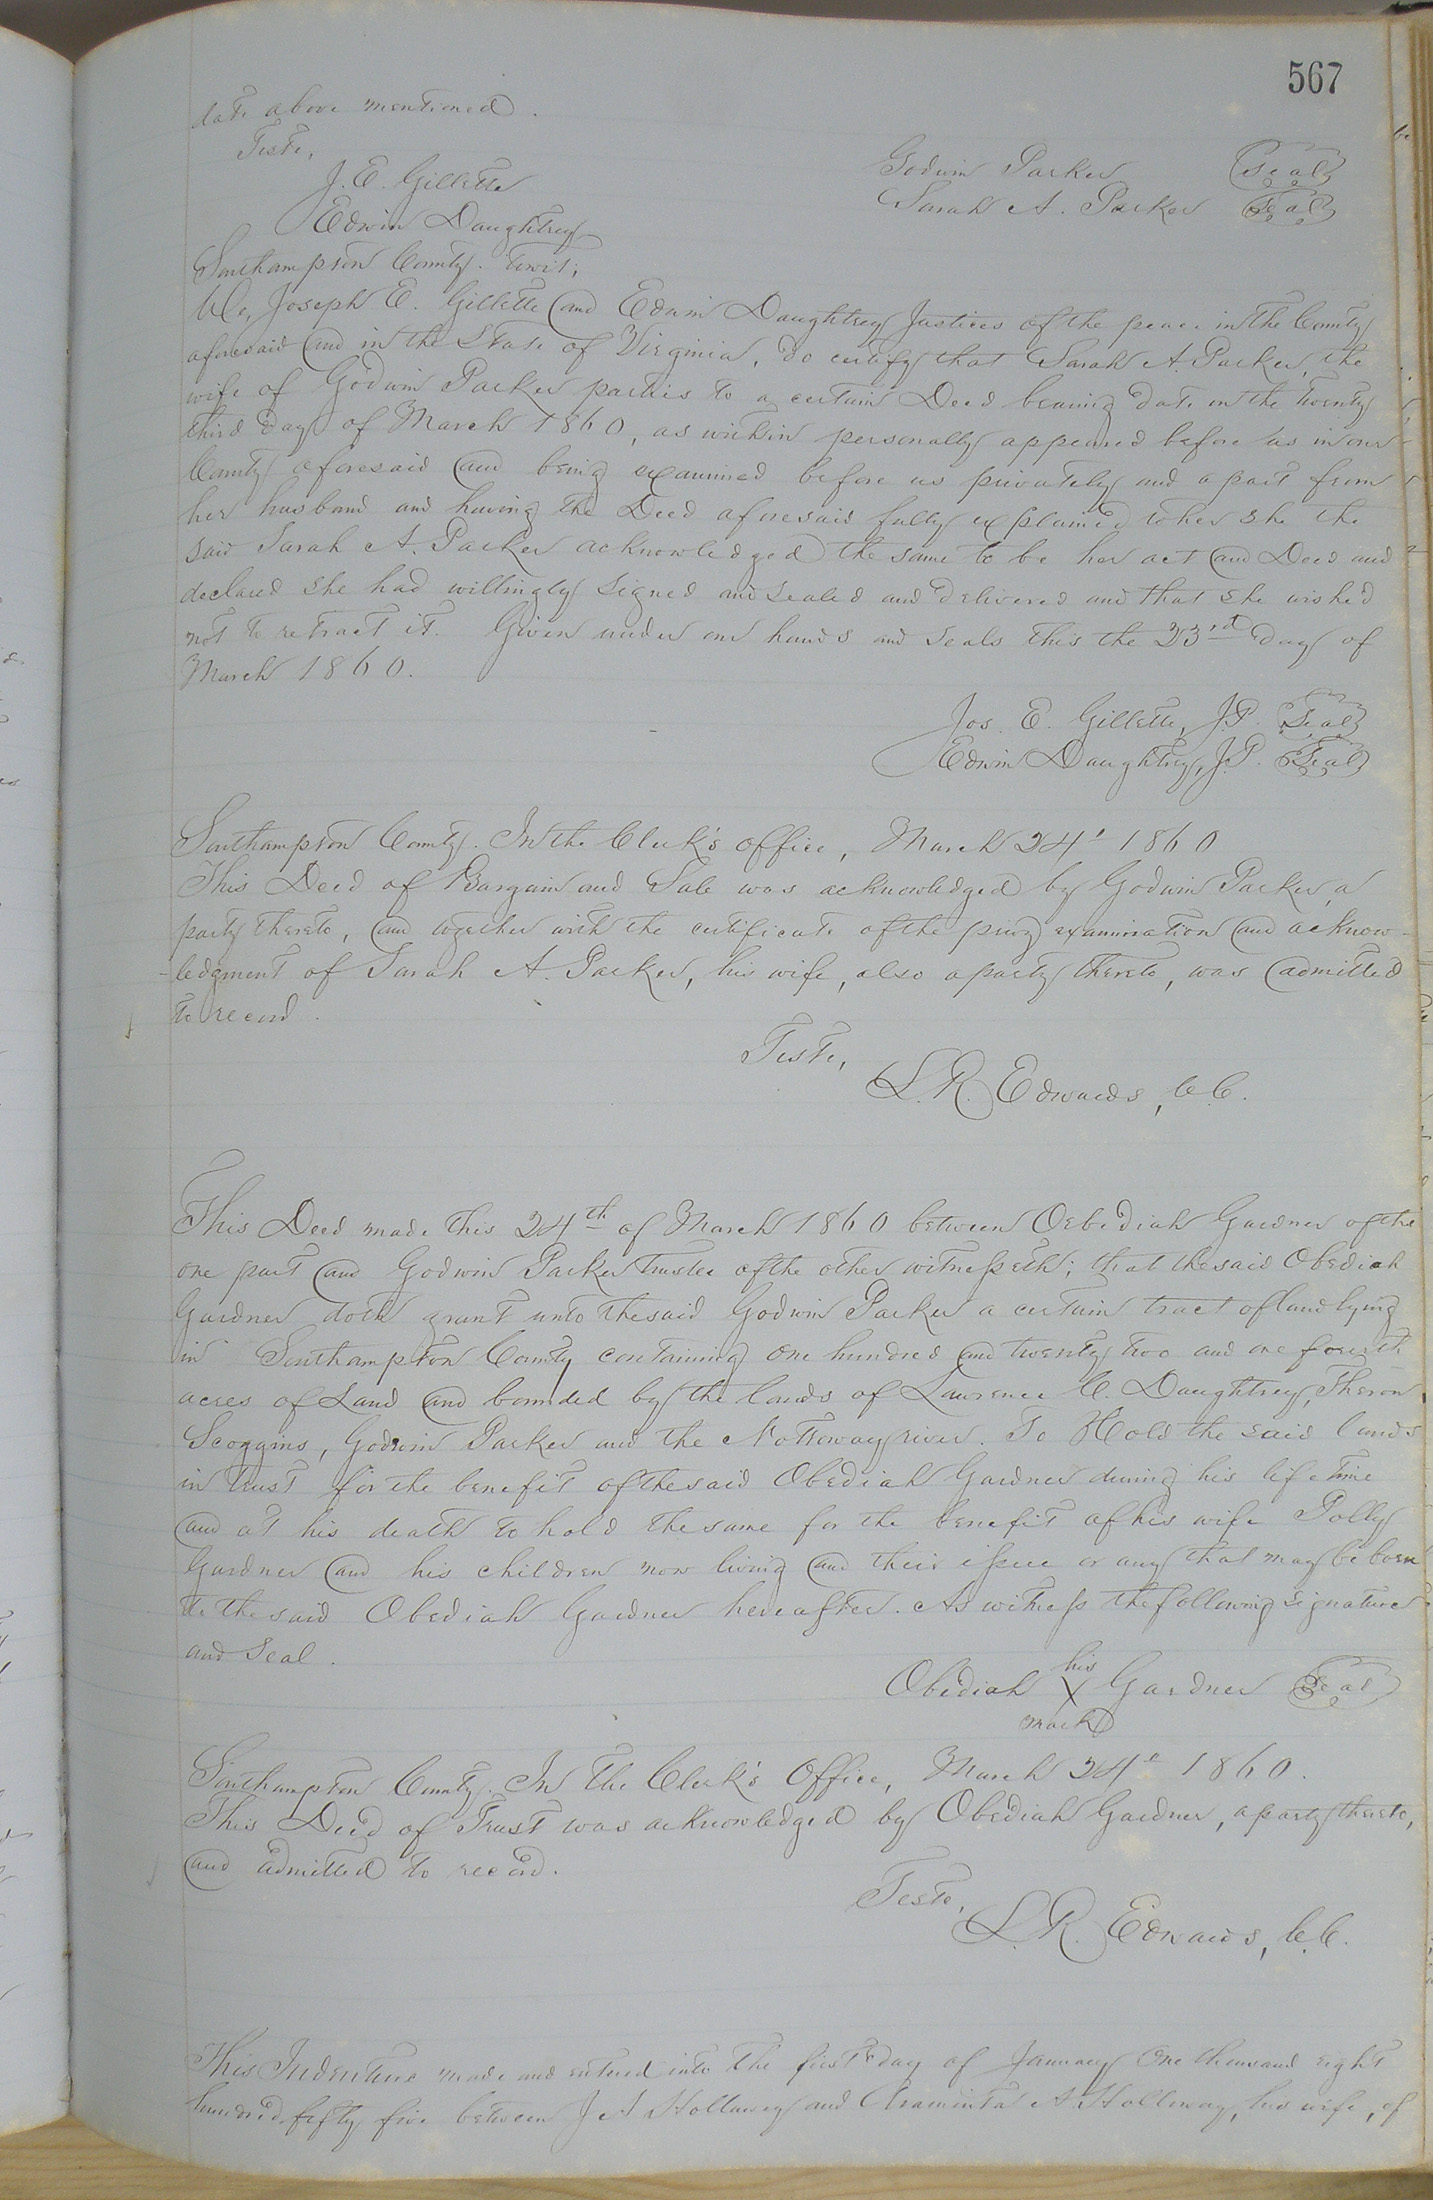 567
date above mentioned.
Teste,
J. E. Gillette
Edwin Daughtrey
Godwin Parker Seal
Sarah A. Parker Seal
Southampton County. towit;
We, Joseph E. Gillette and Edwin Daughtrey Justices of the peace in the County
aforesaid and in the State of Virginia, do certify that Sarah A. Parker, the
wife of Godwin Parker parties to a certain Deed bearing date on the twenty
third day of March 1860, as within personally appeared before us in our
County aforesaid and being examined before us privately and apart from
her husband and having the Deed aforesaid fully explained to her she the
said Sarah A. Parker acknowledged the same to be her act and Deed and
declared she had willingly signed and sealed and delivered and that she wished
not to retract it. Given under our hands and seals this the 23rd day of
March 1860.
Jos. E. Gillette, J.P. Seal
Edwin Daughtrey, J.P. Seal
Southampton County. In the Clerk's office, March 24' 1860
This Deed of Bargain and Sale was acknowledged by Godwin Parker, a
party thereto, and together with the certificate of the privy examination and acknow-
-ledgment of Sarah A. Parker, his wife, also a party thereto, was admitted
to record.
Teste,
L. R. Edwards, C.C.
This Deed made this 24th of March 1860 between Oebediah Gardner of the
one part and Godwin Parker trustee of the other witnesseth; that the said Obediah
Gardner doth grant unto the said Godwin Parker a certain tract of land lying
in Southampton County containing one hundred and twenty two and one fourth
acres of Land and bounded by the lands of Lawrence C. Daughtrey, Theron
Scoggins, Godwin Parker and the Nottoway river. To Hold the said lands
in trust for the benefit of the said Obediah Gardner during his life time
and at his death to hold the same for the benefit of his wife Polly
Gardner and his children now living and their issue or any that may be born
to the said Obediah Gardner hereafter. As witness the following signature
and seal.
his
Obediah X Gardner Seal
mark
Southampton County. In the Clerk's Office, March 24" 1860.
This Deed of Trust was acknowledged by Obediah Gardner, a party thereto,
and admitted to record.
Teste,
L. R. Edwards, C.C.
This Indenture made and entered into the first day of January One thousand eight
hundred fifty five between J A Holloway and Araminta A. Holloway, his wife, of